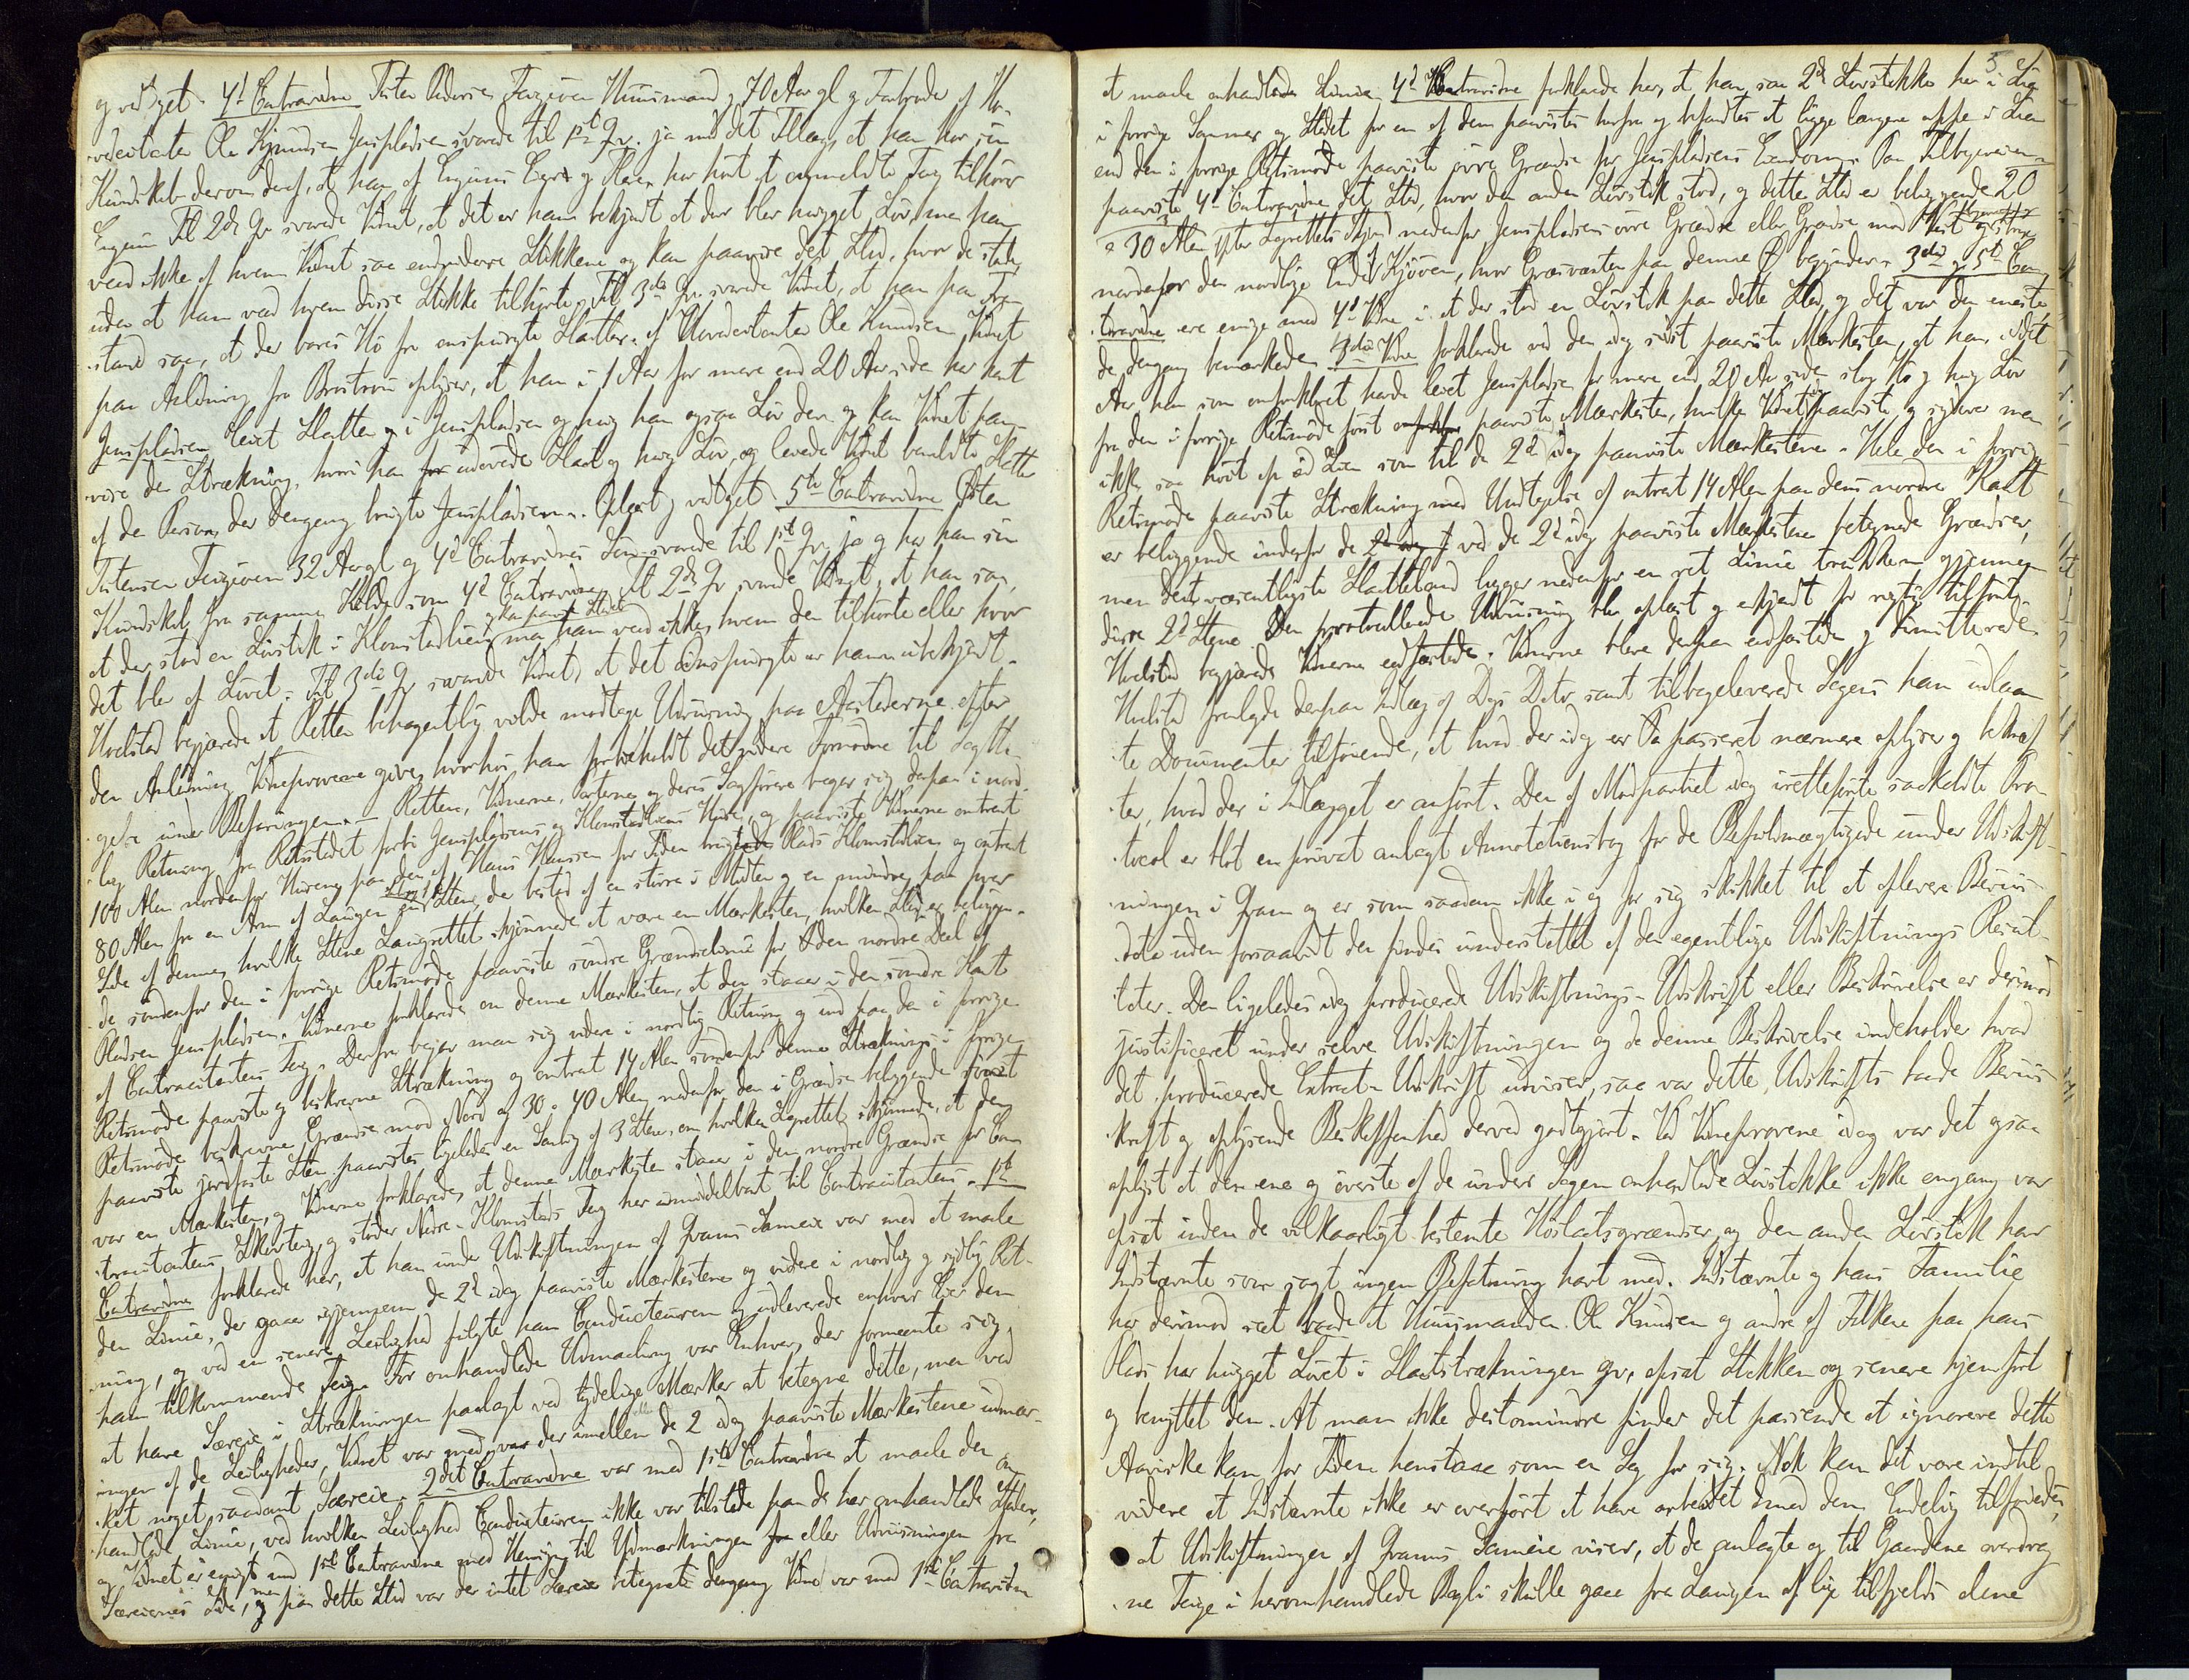 og vedtaget. 4d Contravidne Tosten Pedersen Forgiven Huusmand, 70 Aar gl og Forbruder af Ho-
vedcitanten Ole Kjønnsen Jensplads svarede til 1ste Qv. ja med det Tillæg, at han har sin
Kundskab derom deraf, at han af Engums Eiere og Fleere har hørt at ommeldte Teig tilhører
Engum. Til 2det Qv svarede Vidnet, at det er ham bekjendt at der blev hugget Løv, men han
veed ikke af hvem. Vidnet saae endvidere Stikkene og kan paavise det Sted, hvor de stode,
uden at ham veed hvem disse Stikke tilhørte. Til 3die Qv. svarede Vidnet, at han paa Fra-
stand saae, at der bares Hø fra omspurgte Slaatter. Af Hovedcitanten Ole Knudsen Vidnet
paa Anledning fra Brostrøm oplyser, at han i 1 Aar for mere end 20 Aar siden har havt
Jenspladsen leiet Slaatten i Jenspladsen og hug han ogsaa Løv der og kan Vidnet paa-
vise den Strækning, hvori han udøvede Slaat og hug Løv, og levede Vidnet bemeldte Slaatte
af den Person, der dengang brugte Jenspladsen. Oplæst, vedtaget. 5te Contravidne Østen
Tostensen Forgiven 32 Aar gl og 4d Contravidnes Søn svarede til 1ste Qv. ja og har han sin
Kundskab fra samme Kilde som 4d Contravidne. Til 2det Qv svarede Vidnet, at han saae,
at der stod en Løvstik i Klomstadlien og kan paavise Stedet, men han veed ikke, hvem den tilhørte eller hvor
det blev af Løvet. Til 3die Qv svarede Vidnet, at det Omspurgte er ham ubekjendt.
Hvelstad begjærede at Retten behageligen vilde modtage Udviisning paa Aastederne efter
den Anledning Vidneprovene give, hvorhos han forbeholdt det videre Fornødne til Iagtta-
gelse under Befaringen. — Retten, Vidnerne, Parterne og deres Sagførere begav sig derpaa i nord-
lig Retning fra Retsstedet forbi Jenspladsens og Klomstadliens Huse, og paaviste Vidnerne omtrent
100 Alen nordenfor Husene paa den af Hans Hanssen for Tiden brugte Plads Klomstadlien og omtrent
80 Alen fra en Arm af Laugen Slags Stene, der bestod af en større i Midten og en mindre paa hver
Side af denne, hvilke Stene Laugrettet skjønnede at være en Mærkesten, hvilken Steds er beliggen-
de søndenfor den i forrige Retsmøde paaviste søndre Grændselinie for den nordre Deel af
Pladsen Jenspladsen. Vidnerne forklarede om denne Mærkesten, at den staaer i den søndre Kant
af Contracitantens Teig. Derfra begav man sig videre i nordlig Retning og ind paa den i forrige
Retsmøde paaviste og beskrevne Strækning og omtrent 14 Alen søndenfor denne Stræknings i forrige
Retsmøde beskrevne Grændse mod Nord og 30 a 40 Alen nedenfor den i Grændse beliggende først
paaviste jordfaste Sten paavistes ligeledes en Samling af 3 Stene, om hvilken Lagrettet skjønnede, at den
var en Mærkesten, og Vidnerne forklarede, at denne Mærkesten staaer i den nordre Grændse for Con-
tracitantens Skovteig, og støder Nedre-Klomstads Teig her umiddelbart til Contracitantens. 1ste
Contravidne forklarede her, at han under Udskiftningen af Frams Sameie var med at maale
den Linie, der gaaer igjennem de 2de idag paaviste Mærkestene og videre i nordlig og sydlig Ret-
ning, og ved en senere Leilighed fulgte han Conducteuren og udleverede enhver Eier den
ham tilkommende Teig. For omhandlede Udmaaling var Enhver, der formeente sig
at have Særeie i Strækningen paalagt ved tydelige Mærker at betegne dette, men ved
ingen af de Leiligheder, Vidnet var med, var der imellem de 2 idag paaviste Mærkestene udmær-
ket noget saadant Særeie. 2det Contravidne var med 1ste Contravidne at maale den om-
handlede Linie, ved hvilken Leilighed Conducteuren ikke var tilstede paa de her omhandlede Steder,
og Vidnet er enigt med 1ste Contravidne med Hensyn til Udmærkningen eller Udviisningen fra
Særeiernes Side, men paa dette Sted var der intet Særeie betegnet dengang Vidnet var med 1ste Contravidne
5
at maale omhandlede Linie. 4d Contravidne forklarede her, at han saae 2de Løvstikke her i Lia
i forrige Sommer og Stedet for en af dem paavistes herfra og befandtes at ligge længere oppe i Lien
end den i forrige Retsmøde paaviste øvre Grændse for Jenspladsens Eiendom. Paa Tilbageveien
paaviste 4d Contravidne det Sted, hvor den anden Løvstik stod, og dette Sted er beliggende 20
a 30 Alen efter Lagrettets Skjøn nedenfor Jenspladsens øvre Grændse eller Grændse mod Vest
nordenfor den nordlige Ende af Kjøven, hvor Græsvæxten paa denne Ø begynder. 3die og 5te Con-
travidne ere enige med 4d Vidne i at der stod en Løvstik paa dette Sted, og det var den eneste
de dengang bemærkede. 3die Vidne forklarede ved den idag sidst paaviste Mærkesten, at han i det
Aar han som omforklaret havde leiet Jenspladsen for mere end 20 Aar siden slog Hø og hug Løv
fra den i forrige Retsmøde først paaviste Mærkesten, hvilken Vidnet paaviste, og sydover men
ikke saa høit op ad Lien som til de 2de idag paaviste Mærkestene. Hele den i forrige
Retsmøde paaviste Strækning med Undtagelse af omtrent 14 Alen paa dens nordre Kant
er beliggende indenfor de ved de 2de idag paaviste Mærkestene betegnede Grændser,
men dens væsentligste Slaatteland ligger nedenfor en ret Linie trukken gjennem
disse 2de Stene. Den protocollerede Udviisning blev oplæst og erkjendt for rigtig tilført.
Hvelstad begjærede Vidnerne eedfæstede. Vidnerne bleve derpaa eedfæstede og dimitterede.
Hvelstad fremlagde derpaa Indlæg af Dags Dato samt tilbageleverede Sagens ham udlaan-
te Documenter tilføiende, at hvad der idag er passeret nærmere oplyser og bekræf-
ter, hvad der i Indlægget er anført. Den af Modpartiet idag irettefførte saakaldte Pro-
tocol er blot en privat anlagt Annotationsbog for de Befuldmægtigede under Udskift-
ningen i Fram og er som saadan ikke i og for sig skikket til at aflevere Beviis-
data uden forsaavidt den findes understøttet af den egentlige Udskiftnings Resul-
tater. Den ligeledes idag producerede Udskiftnings-Udskrift eller Beskrivelse er derimod
justificeret under selve Udskiftningen og da denne Beskrivelse indeholder hvad
det producerede Extract-Udskrift udviser, saa var dette Udskrifts baade Beviis-
kraft og oplysende Beskaffenhed derved godtgjort. Ved Vidneprovene idag var det ogsaa
oplyst at den ene og øverste af de under Sagen omhandlede Løvstikke ikke engang var
opsat inden de vilkaarligt bestemte Høslaatsgrændser, og den anden Løvstik har
Indstævnte som sagt ingen Befatning havt med. Indstævnte og hans Familie
har derimod seet baade at Huusmanden Ole Knudsen og andre af Folkene paa hans
Plads har hugget Løvet i Slaatstrækningen qv., opsat Stikken og senere hjemført
og benyttet den. At man ikke destomindre finder det passende at ignorere dette
Aaviske kan for Tiden henstaae som en Sag for sig. Nok kan det være indtil
videre at Indstævnte ikke er overført at have arbeidet med dem. Endelig tilføiedes,
at Udskiftningen af Frams Sameie viser, at de anlagte og til Gaardene overdrag-
ne Teige i heromhandlede Bagli skulle gaae fra Laugen af lige tilfjelds alene